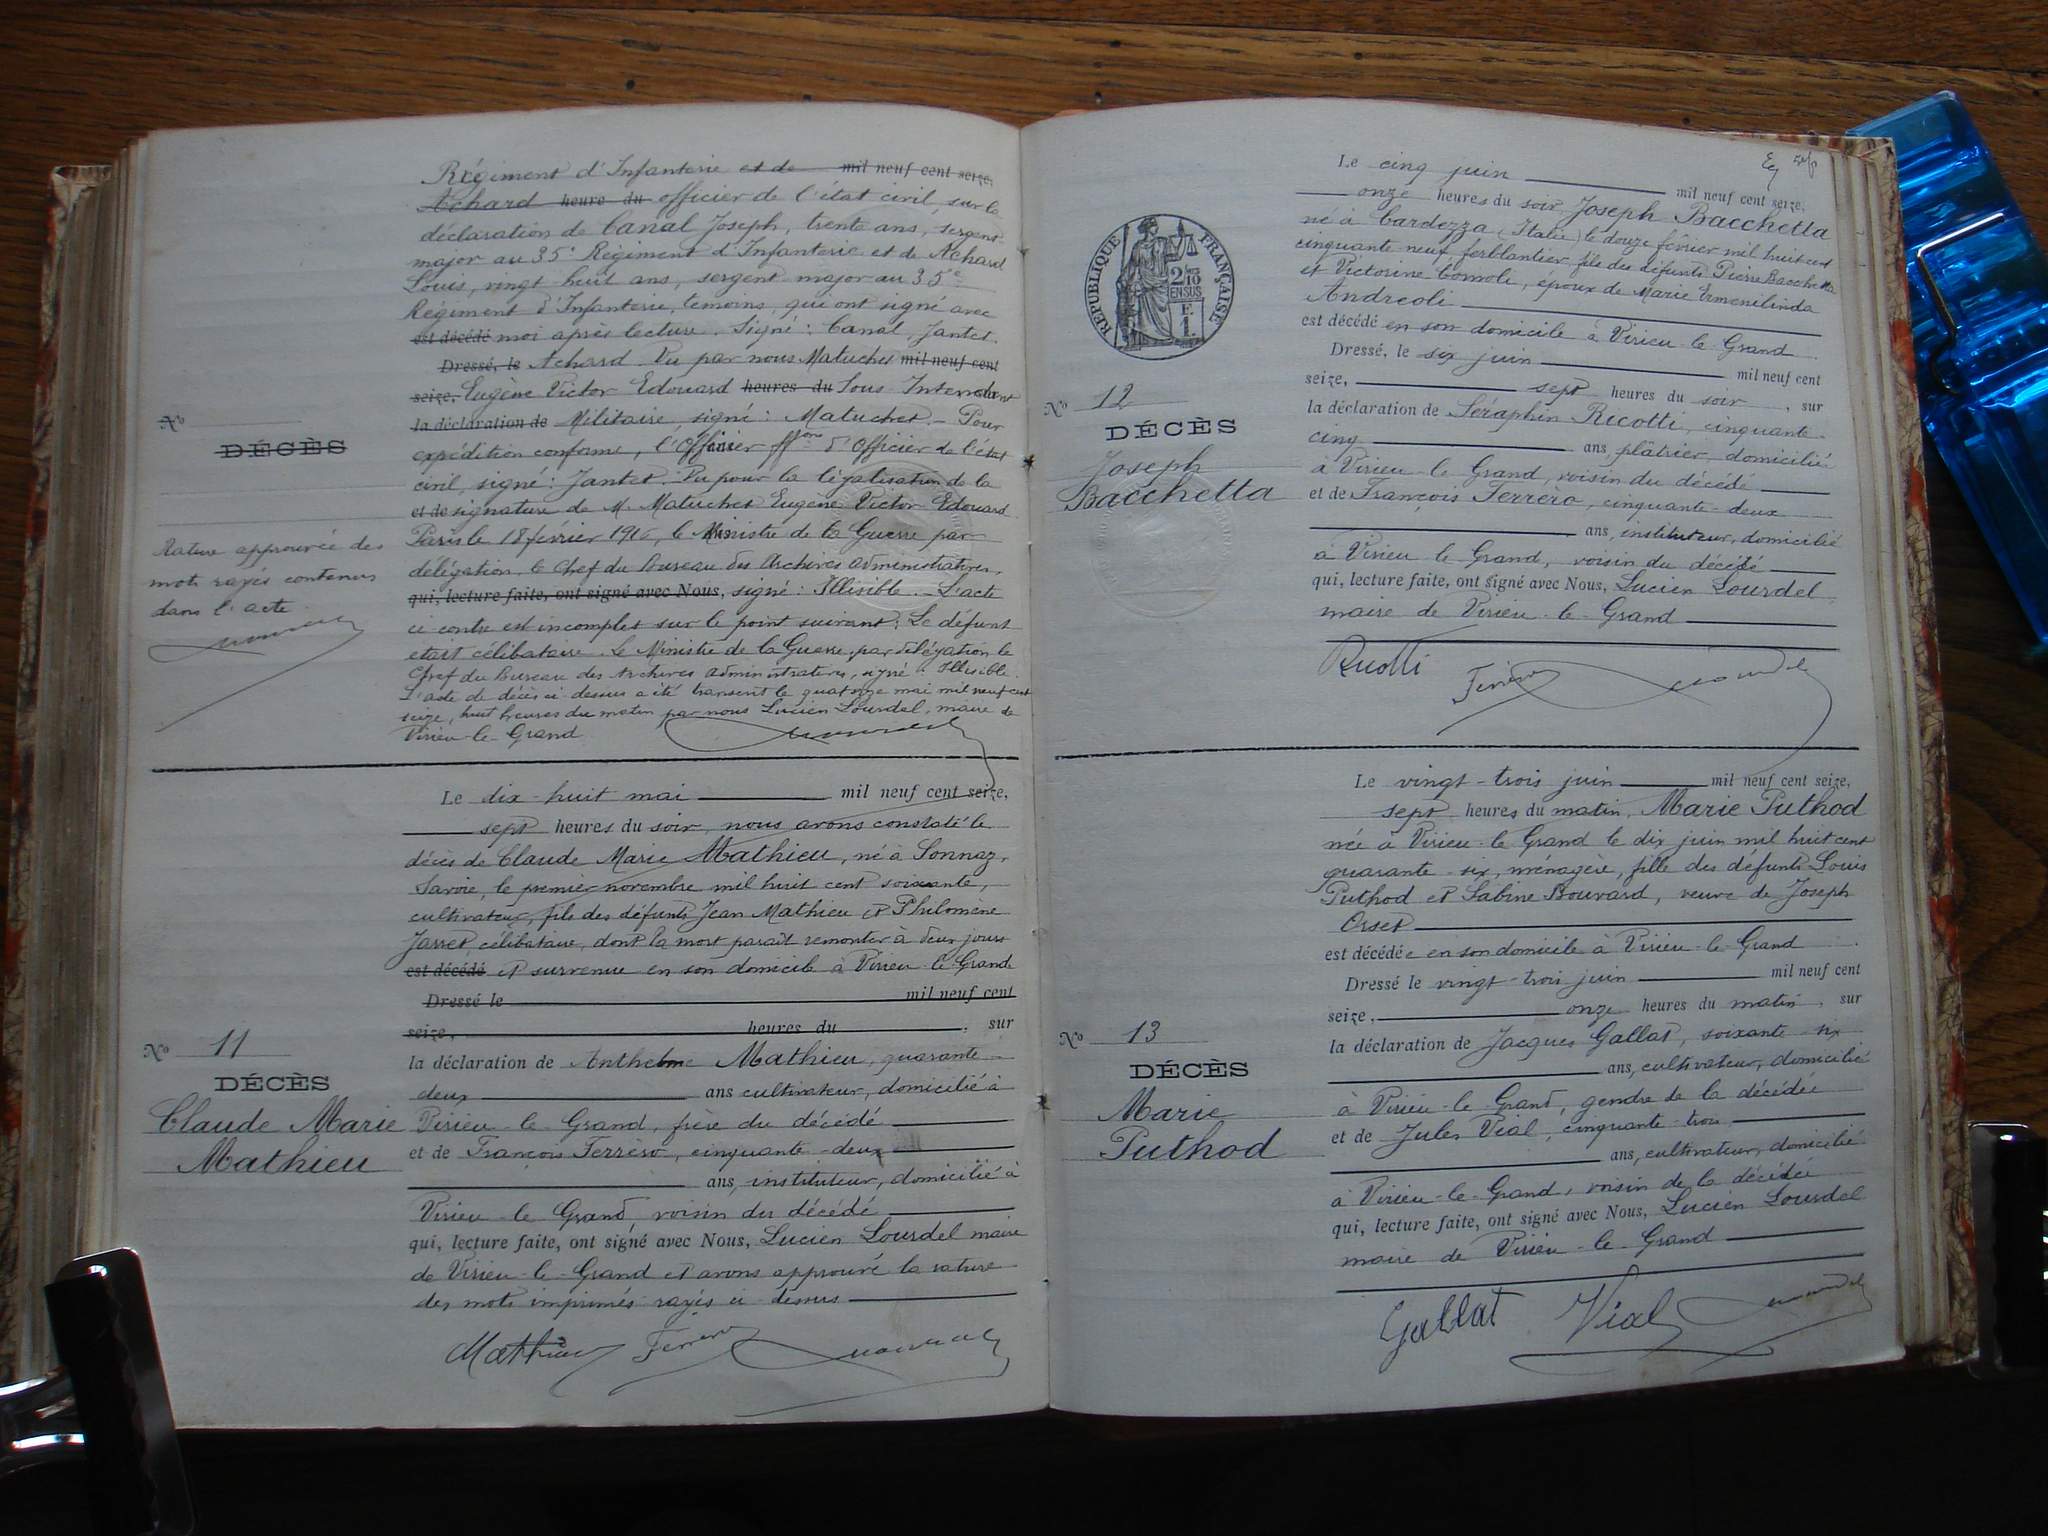 Régiment d'Infanterie et de mil neuf cent seize,
Achard heure du officier de l'état civil, sur la
déclaration de Canal Joseph, trente ans, sergent-
major au 35e Régiment d'Infanterie et de Achard
Louis, vingt-huit ans, sergent major au 35e
Régiment d'Infanterie, témoins, qui ont signé avec
est décédé moi après lecture. Signé: Canal, Jantet.
Dressé, le Achard. Vu par nous Matuchet mil neuf cent
seize, Eugène Victor Edouard heures du Sous-Intendant
la déclaration de Militaire, signé: Matuchet. - Pour
expédition conforme, l'Officier ffons d'Officier de l'état
civil, signé: Jantet. Vu pour la légalisation de la
et de signature de M. Matuchet Eugène Victor Edouard
Paris le 18 février 1916, le Ministre de la Guerre par
délégation, le Chef du Bureau des Archives administratives,
qui, lecture faite, ont signé avec Nous, signé: Illisible. - L'acte
ci contre est incomplet sur le point suivant: Le défunt
était célibataire. Le Ministre de la Guerre, par délégation le
Chef du Bureau des Archives administratives, signé: Illisible.
L'acte de décès ci-dessus a été transcrit le quatorze mai mil neuf cent
seize, huit heures du matin par nous Lucien Lourdel, maire de
Virieu-le-Grand
No
DÉCÈS
Rature approuvée des
mots rayés contenus
dans l'acte
Le dix-huit mai mil neuf cent seize,
sept heures du soir, nous avons constaté le
décès de Claude Marie Mathieu, né à Sonnaz,
Savoie, le premier novembre mil huit cent soixante,
cultivateur, fils des défunts Jean Mathieu et Philomène
Jarret, célibataire, dont la mort paraît remonter à deux jours
est décédé et survenue en son domicile à Virieu-le-Grand
Dressé le mil neuf cent
seize, heures du , sur
la déclaration de Anthelme Mathieu, quarante-
deux ans cultivateur, domicilié à
Virieu-le-Grand, frère du décédé
et de François Ferrèro, cinquante-deux
ans, instituteur, domicilié à
Virieu-le-Grand, voisin du décédé
qui, lecture faite, ont signé avec Nous, Lucien Lourdel maire
de Virieu-le-Grand et avons approuvé la rature
des mots imprimés rayés ci-dessus
No 11
DÉCÈS
Claude Marie
Mathieu
Mathieu
RÉPUBLIQUE FRANÇAISE
2/10
EN SUS
F.
1.
Le cinq juin mil neuf cent seize,
onze heures du soir Joseph Bacchetta
né à Cardezza (Italie) le douze février mil huit cent
cinquante neuf, ferblantier, fils des défunts Pierre Bacchetta
et Victorine Comoli, époux de Marie Ermenilinda
Andreoli
est décédé en son domicile à Virieu-le-Grand
Dressé, le six juin mil neuf cent
seize, sept heures du soir , sur
la déclaration de Séraphin Ricotti, cinquante-
cinq ans, plâtrier, domicilié
à Virieu-le-Grand, voisin du décédé
et de François Ferrèro, cinquante-deux
ans, instituteur, domicilié
à Virieu-le-Grand, voisin du décédé
qui, lecture faite, ont signé avec Nous, Lucien Lourdel,
maire de Virieu-le-Grand
No 12
DÉCÈS
Joseph
Bacchetta
Le vingt-trois juin mil neuf cent seize,
sept heures du matin, Marie Puthod
née à Virieu-le-Grand le dix juin mil huit cent
quarante-six, ménagère, fille des défunts Louis
Puthod et Sabine Bouvard, veuve de Joseph
Orset
est décédée en son domicile à Virieu-le-Grand
Dressé le vingt-trois juin mil neuf cent
seize, onze heures du matin , sur
la déclaration de Jacques Gallat, soixante-six
ans, cultivateur, domicilié
à Virieu-le-Grand, gendre de la décédée
et de Jules Vial, cinquante-trois
ans, cultivateur, domicilié
à Virieu-le-Grand, voisin de la décédée
qui, lecture faite, ont signé avec Nous, Lucien Lourdel
maire de Virieu-le-Grand
No 13
DÉCÈS
Marie
Puthod
Gallat Vial